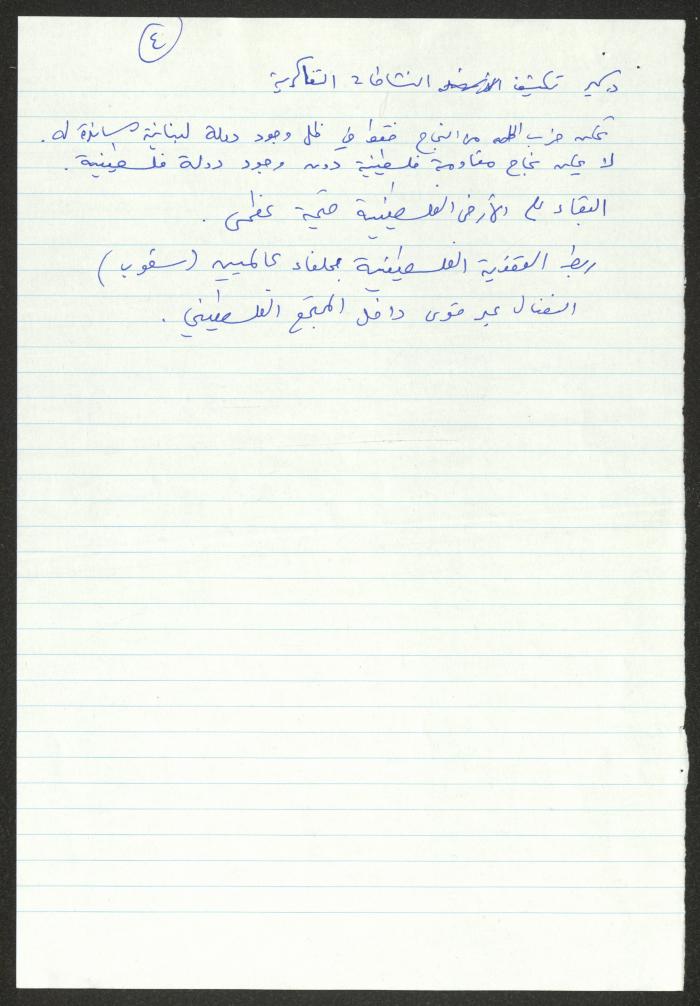 ٤
تكثيف النشاطات الفكرية
تمكن حزب الله من النجاح فقط في ظل وجود دولة لبنانية مساندة له.
لا يمكن نجاح مقاومة فلسطينية دون وجود دولة فلسطينية.
البقاء على الأرض الفلسطينية قيمة عظمى.
ربط القضية الفلسطينية بحلفاء عالميين (شعوب)
النضال عبر قوى داخل المجتمع الفلسطيني.